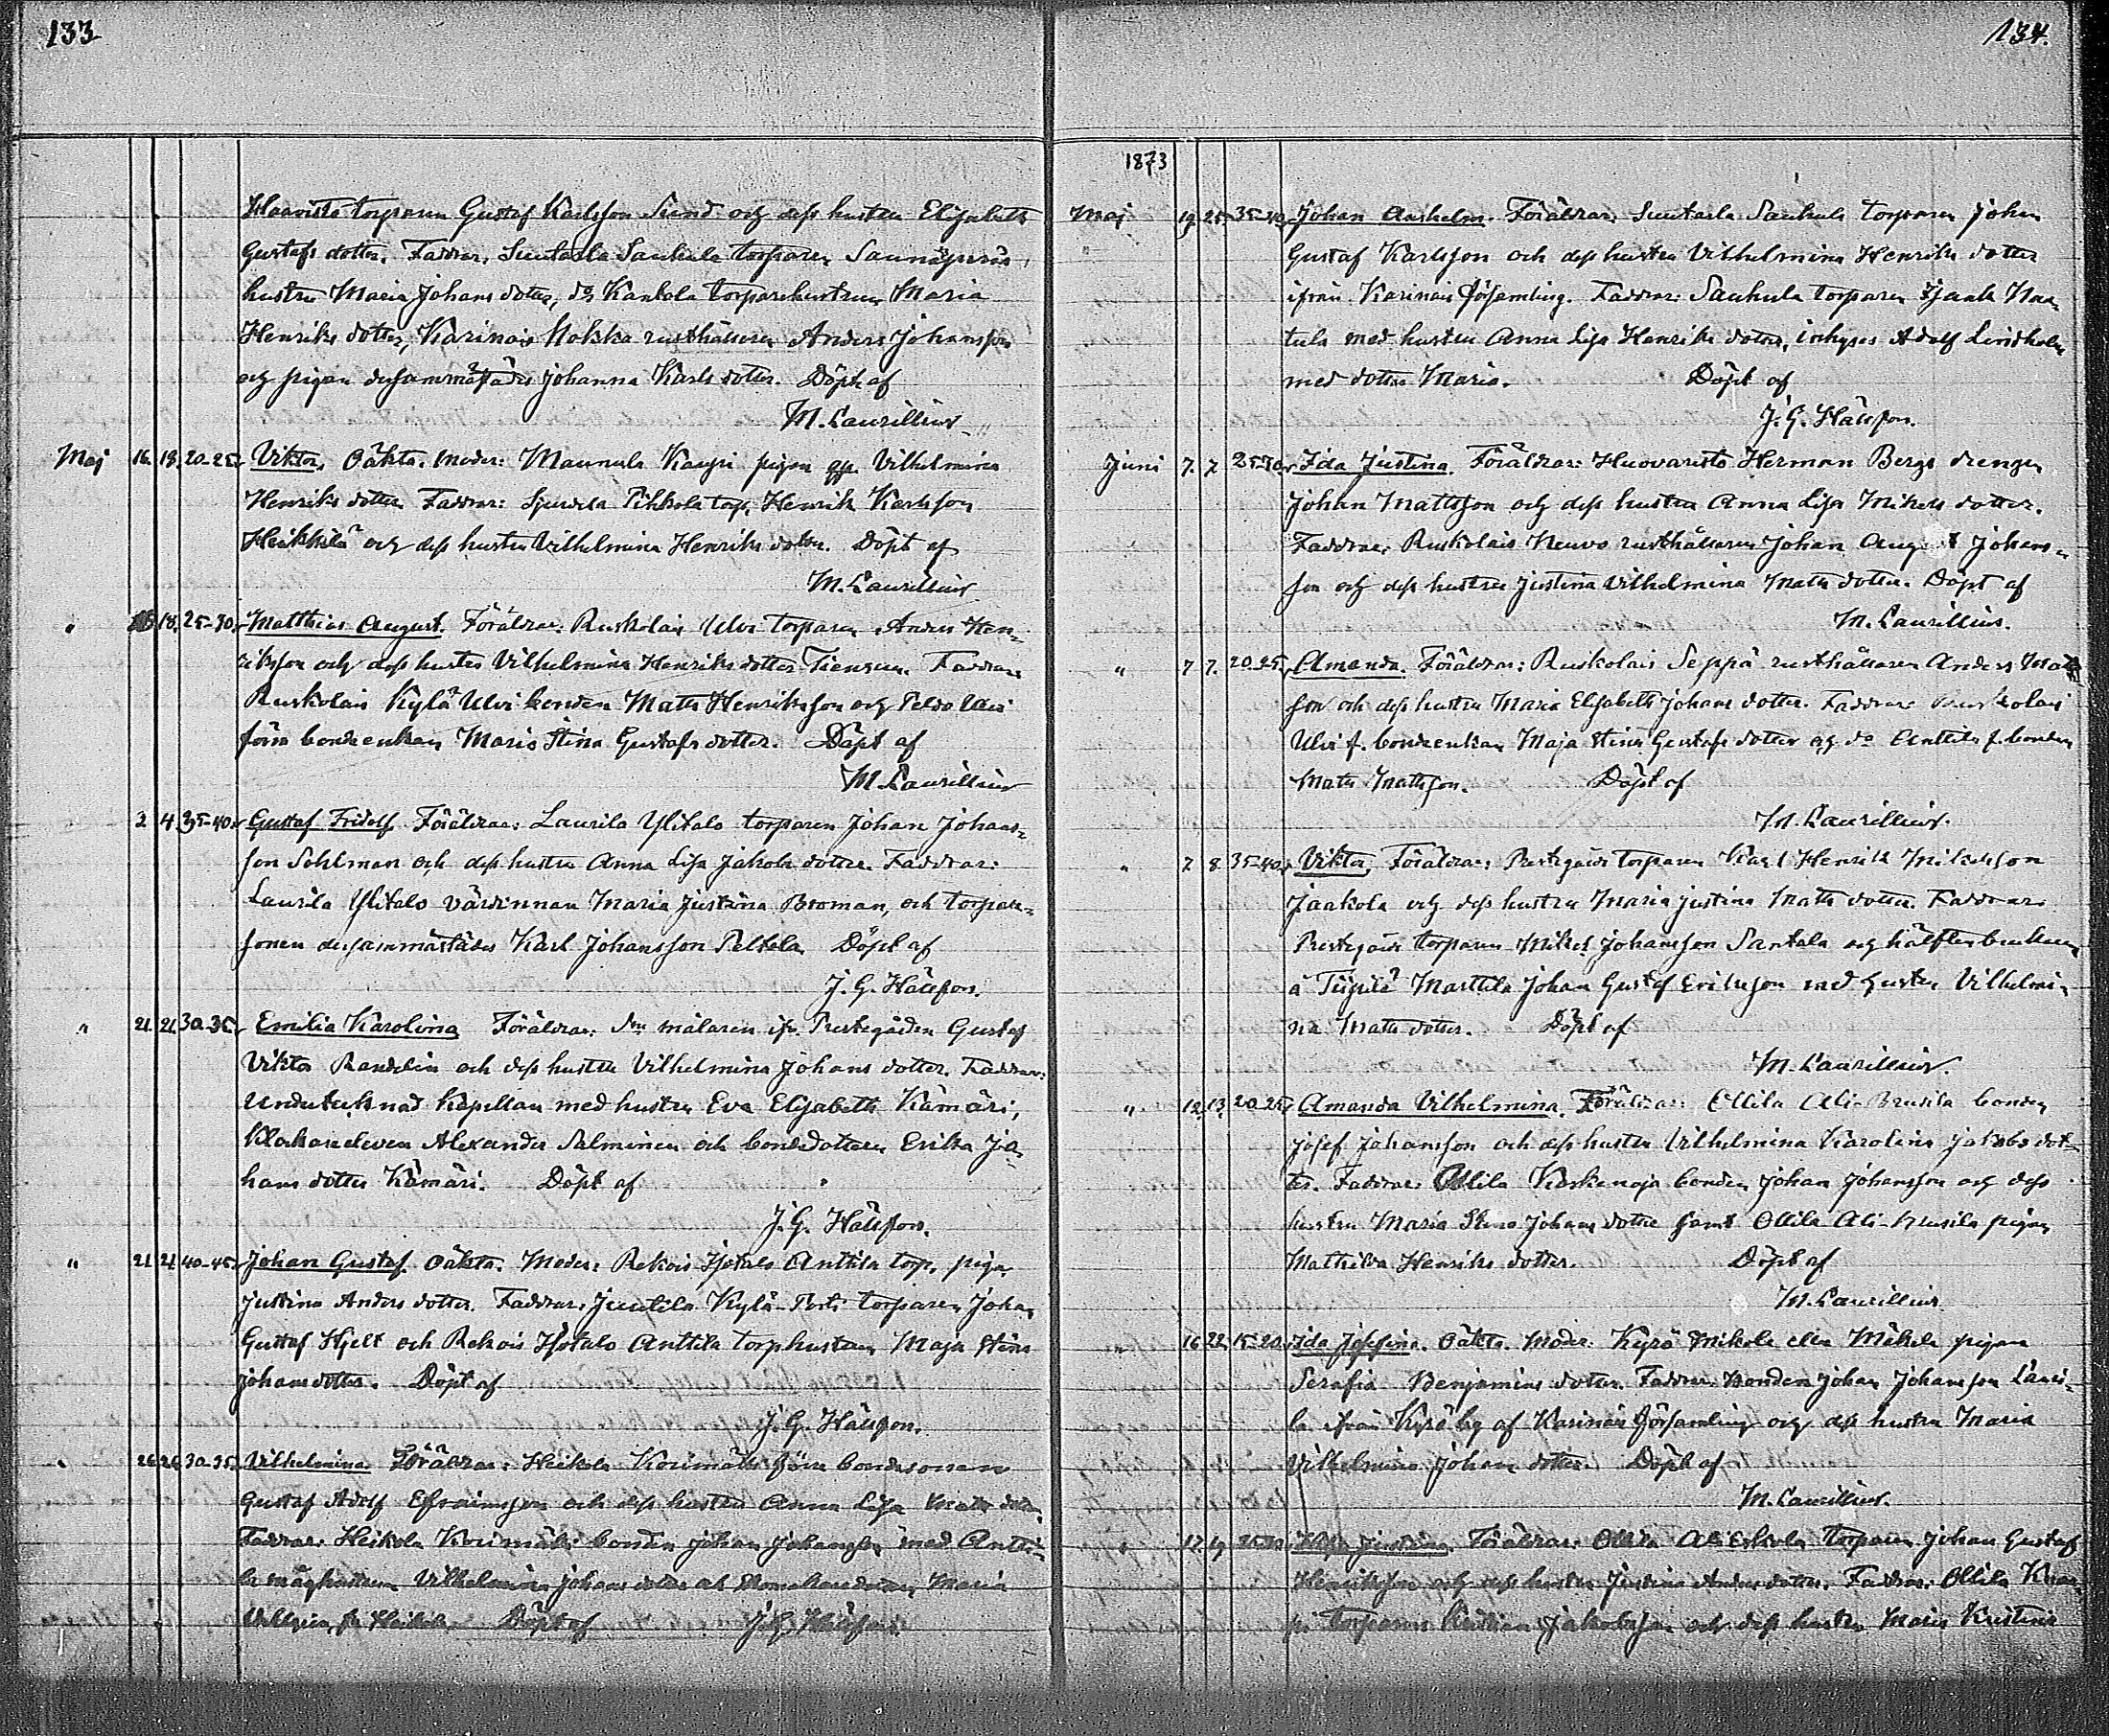 133
Haavisto torparen Gustaf Karlsson Sund och dess hustru Elisabeth
Gustafs dotter. Faddrar: Suutarla Saukula torparen
hustru Maria Johans dotter, do Kankola torparehustrun Maria
Henriks dotter, Karinais Mokka rusthållaren Anders Johansson
och pigan dersammastädes Johanna Karls dotter. Döpt af
M. Laurillius
Maj 16. 18. 20-25. Viktor, Oäkta. Moder: Maunula Kaupi pigan Vilhelmina
Henriks dotter. Faddrar: Pihkola torp. Henrik Karlsson
Heikkilä och dess hustru Vilhelmina Henriks dotter. Döpt af
M. Laurillius
" 18. 25-30. Matthias August. Föräldrar: Ruskolais Ulvi torparen Anders Hen-
riksson och dess hustru Vilhelmina Henriks dotter Faddrar:
Ruskolais Kylä Ulvi bonden Matts Henriksson och Peldo Ulvi
förra bondeenkan Maria Stina Gustafs dotter. Döpt af
M. Laurillius
2 4 35-40. Gustaf Fridolf. Föräldrar: Laurila Ylitalo torparen Johan Johans-
son Sohlman och dess hustru Anna Lisa Jakobs dotter. Faddrar:
Laurila Ylitalo värdinnan Maria Justina Broman, och torpare-
sonen dersammastädes Karl Johansson Peltola Döpt af
J. G. Hälsson.
" 21. 21. 30-35. Emilia Karolina Föräldrar: målaren ifr. Prestegården Gustaf
Viktor Randelin och dess hustru Vilhelmina Johans dotter. Faddrar:
Undertecknad Kapellan med hustru Eva Elisabeth Kämäri,
Klockareeleven Alexander Salminen och bondedottern Erika Jo-
hans dotter Kämäri. Döpt af
J. G. Hälsson.
" 21. 21. 40-45. Johan Gustaf. Oäkta. Moder: Rekois Isotalo Anttila torp. piga
Justina Anders dotter. Faddrar: Juutila Kylä-Porti torparen Johan
Gustaf Hjelt och Rekois Isotalo Anttila torphustrun Maja Stina
Johans dotter. Döpt af
J. G. Hälsson.
" 26. 26. 30-35. Vilhelmina. Föräldrar: Heikola Korimäki förra bondesonen
Gustaf Adolf Efraimsson och dess hustru Anna Lisa Matts dotter.
Faddrar: Heikola Korimäki bonden Johan Johansson med Antti-
la måghustrun Vilhelmina Johans dotter och Maria
fr Heikola. Döpt af J. G. Hälsson.
134.
1873
Maj 19. 25. 35-40. Johan Anshelm. Föräldrar: Suutarla Saukula torparen Johan
Gustaf Karlsson och dess hustru Vilhelmina Henriks dotter
ifrån Karinais församling. Faddrar: Saukula torparen Isaak Naa-
tula med hustru Anna Lisa Henriks dotter, inhyses Adolf Lindholm
med dotter Maria. Döpt af
J. G. Hälsson.
Juni 7. 7. 25-30. Ida Justina. Föräldrar: Huovaristo Herman Bergs drengen
Johan Mattsson och dess hustru Anna Lisa Mikels dotter.
Faddrar: Ruskolais Neuvo rusthållaren Johan August Johans-
son och dess hustru Justina Vilhelmina Matts dotter. Döpt af
M. Laurillius.
" 7. 7. 20-25. Amanda. Föräldrar: Ruskolais Seppä rusthållaren Anders Matts
son och dess hustru Maria Elisabeth Johans dotter. Faddrar: Ruskolais
Ulvi f. bondeenkan Maja Stina Gustafs dotter och do Anttila f. bonden
Matts Mattsson. Döpt af
M. Laurillius.
" 7 8 35-40. Viktor, Föräldrar: Prestegårds torparen Karl Henrik Mikelsson
Jaakola och dess hustru Maria Justina Matts dotter. Faddrar:
Prestegårds torparen Mikel Johansson Santala och hälftenbrukaren
å Marttila Johan Gustaf Eriksson med hustru Vilhelmi-
na Matts dotter. Döpt af
M. Laurillius.
" 12. 13. 20-25. Amanda Vilhelmina. Föräldrar: Ollila Ali-Brusila bonden
Josef Johansson och dess hustru Vilhelmina Karolina Jakobs dot-
ter. Faddrar: Ollila Koskenoja bonden Johan Johansson och dess
hustru Maria Stina Johans dotter samt Ollila Ali-Brusila pigan
Mathilda Henriks dotter. Döpt af
M. Laurillius
16. 22. 15-20. Ida Josefina. Oäkta. Moder: Kyrö Mikola eller Mäkela pigan
Serafia Benjamins dotter. Faddrar: bonden Johan Johansson Lauri-
la ifrån Kyrö by af Karinais församling och dess hustru Maria
Vilhelmina Johans dotter. Döpt af
M. Laurillius.
" 17. 19. 25-30. Justina. Föräldrar: Ollila Ali Eskola torparen Johan Gustaf
Henriksson och dess hustru Justina Anders dotter. Faddrar: Ollila
torparen Jakobsson och dess hustru Maria Kristina